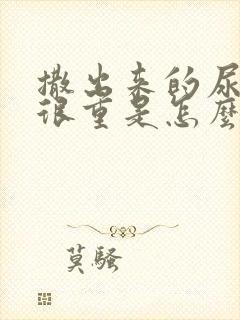 撒出来的尿
很重是怎麼
莫騷